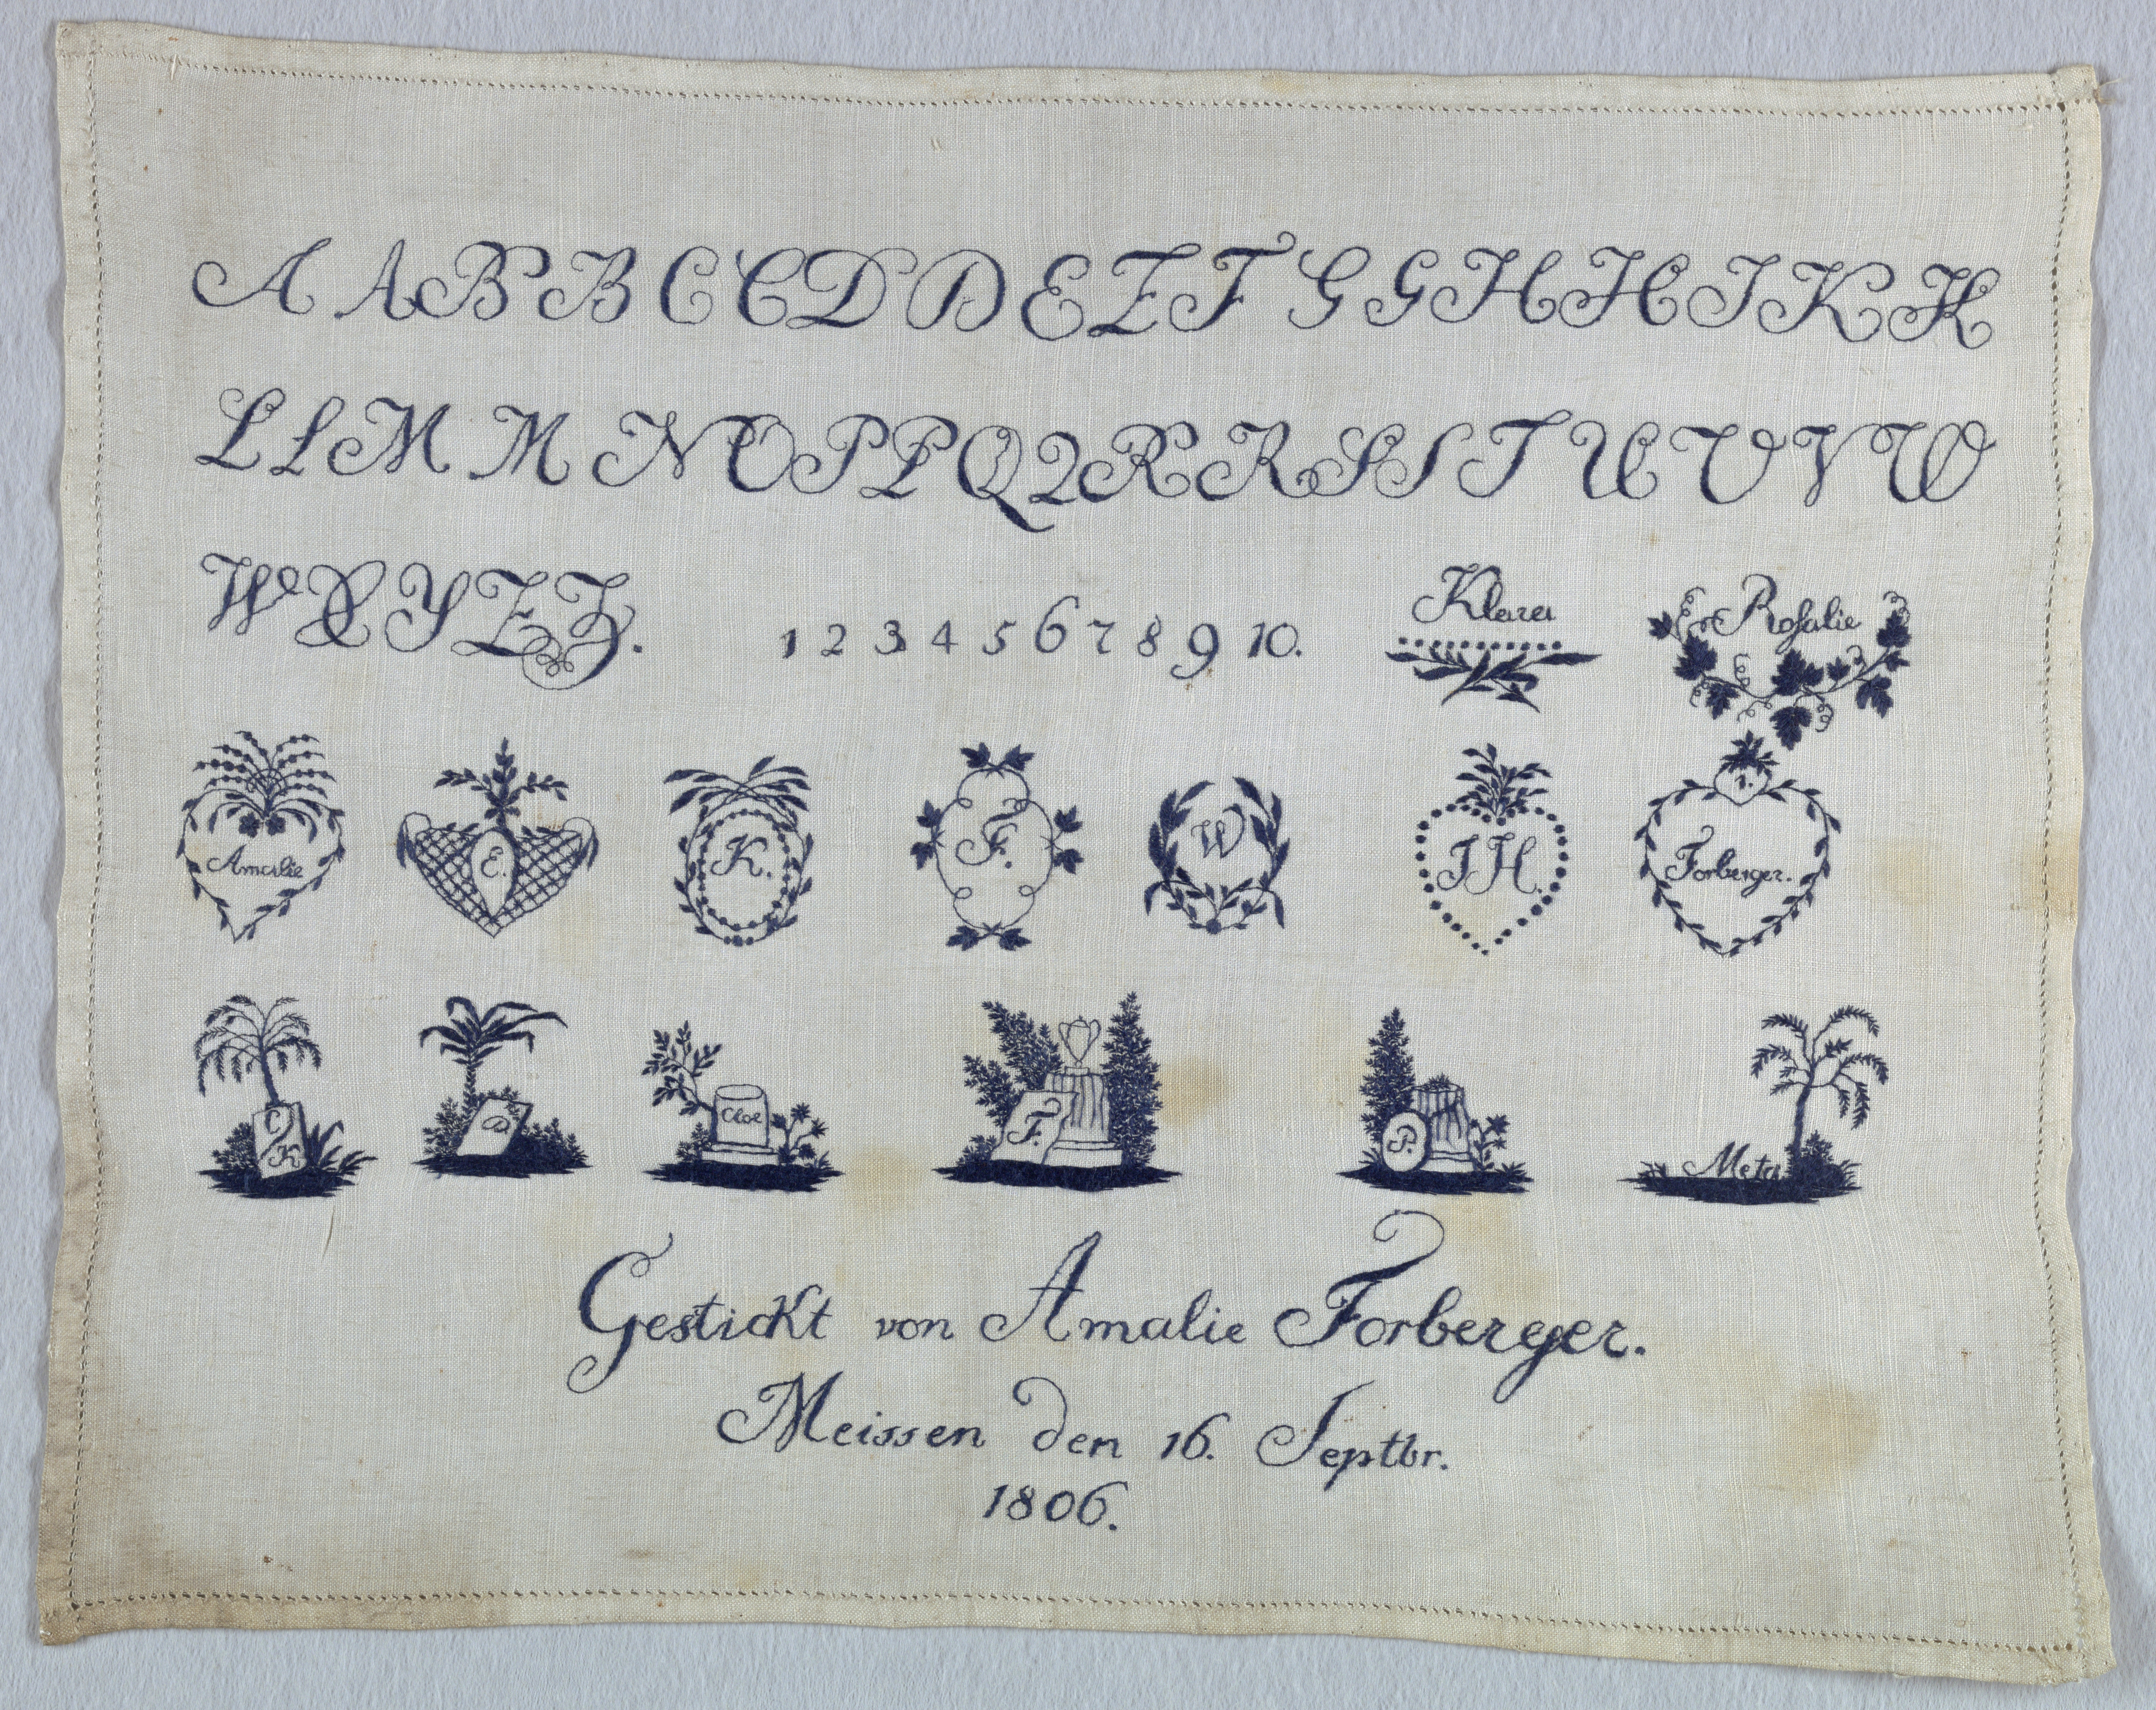 A A B B C C D D E E F G G H H I K K
L L M M N O P P Q Q R R S S T U U V W
W X Y Z Z.
1 2 3 4 5 6 7 8 9 10.
Klara
Rosalie
Amalie
E.
K.
F.
W
J H.
Forberger.
C K
D
Cloe
F.
P.
Meta
Gestickt von Amalie Forberger.
Meissen den 16. Septbr.
1806.